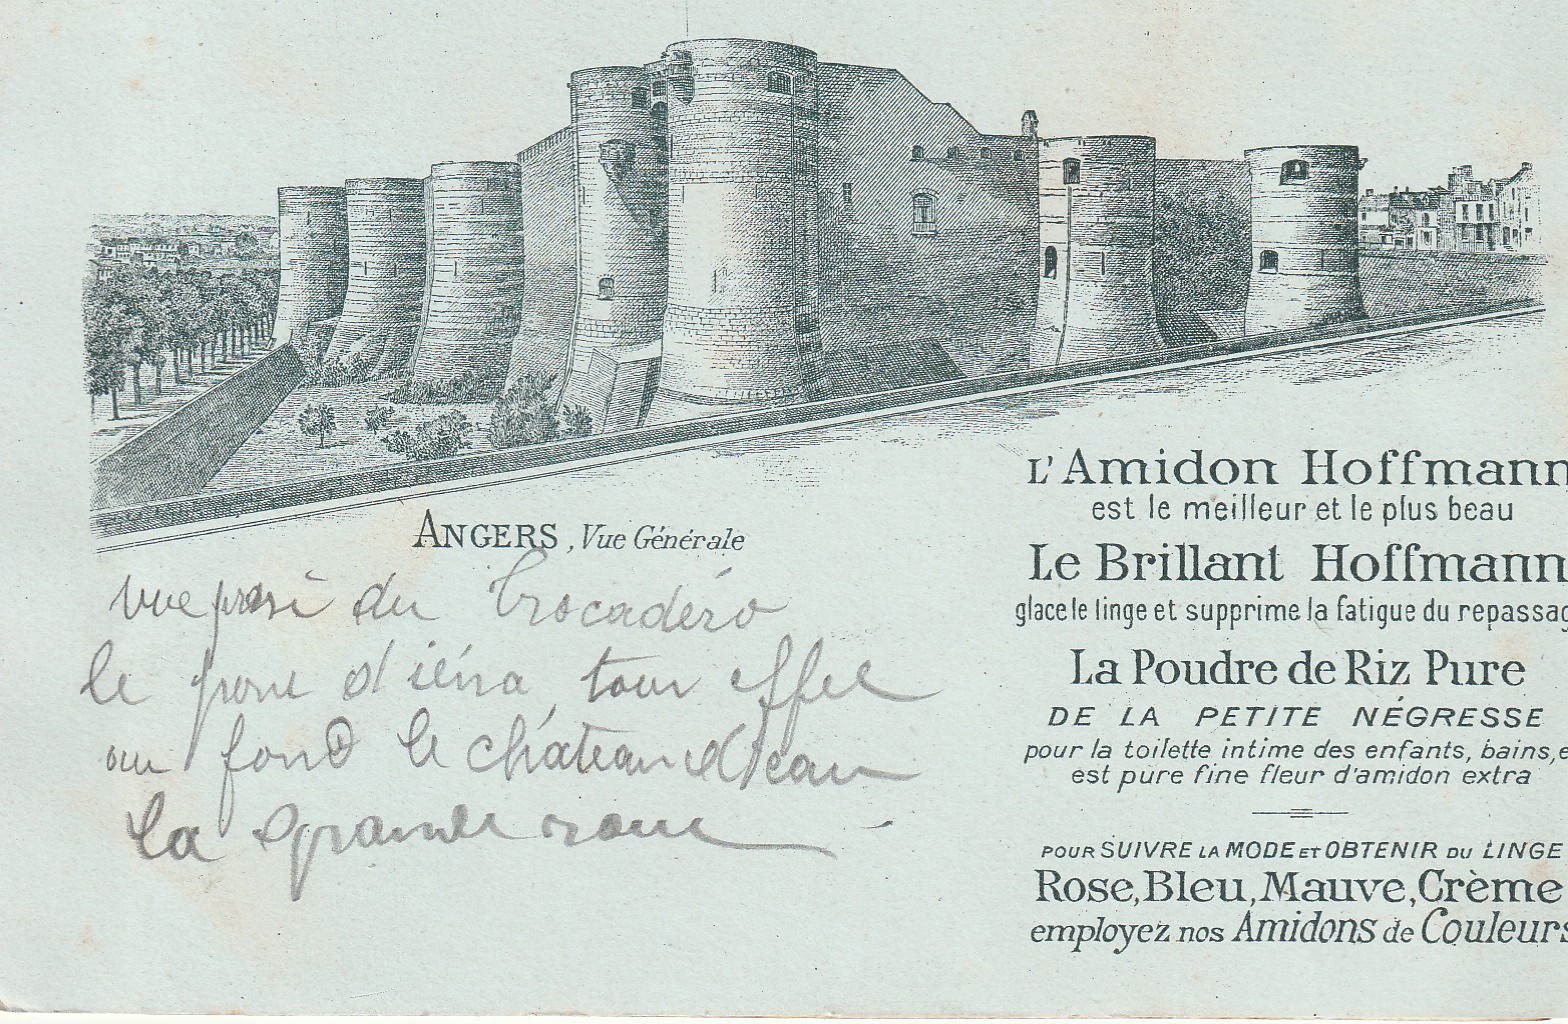 ANGERS, Vue Générale
vue prosi du Trocadéro
le pont d'iéna, tour effel
au fond le château d'eau
la grande roue
L'Amidon Hoffmann
est le meilleur et le plus beau
Le Brillant Hoffmann
glace le linge et supprime la fatigue du repassag
La Poudre de Riz Pure
DE LA PETITE NÉGRESSE
pour la toilette intime des enfants, bains, e
est pure fine fleur d'amidon extra
POUR SUIVRE LA MODE ET OBTENIR DU LINGE
Rose, Bleu, Mauve, Crème
employez nos Amidons de Couleurs